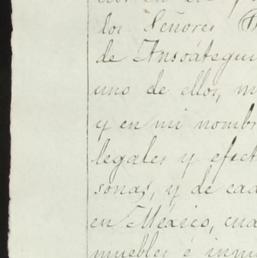 los Señores
de Ansoátegui
uno de ellos, m
y en mi nombr
legales y efect
sonas, y de cad
en México, cua
muebles é inmu